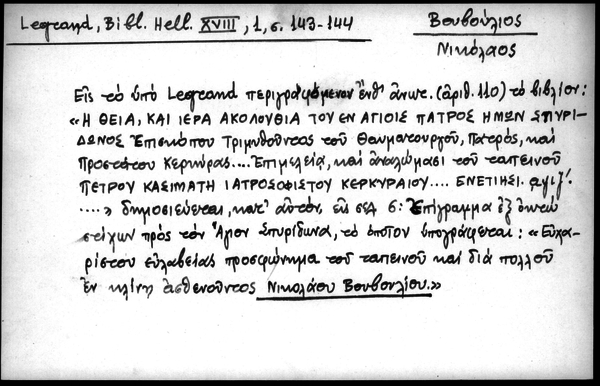 Legrand, Bibl. Hell. XVIII, 1, σ. 143-144
Βουβούλιος
Νικόλαος
Εἰς τὸ ὑπὸ Legrand περιγραφόμενον ἔνθ' ἀνωτ. (ἀριθ. 110) τὸ βιβλίον:
«Η ΘΕΙΑ, ΚΑΙ ΙΕΡΑ ΑΚΟΛΟΥΘΙΑ ΤΟΥ ΕΝ ΑΓΙΟΙΣ ΠΑΤΡΟΣ ΗΜΩΝ ΣΠΥΡΙ-
ΔΩΝΟΣ Ἐπισκόπου Τριμυθοῦντος τοῦ Θαυματουργοῦ, Πατρὸς, καὶ
Προστάτου Κερκύρας.... Ἐπιμελείᾳ, καὶ ἀναλώμασι τοῦ ταπεινοῦ
ΠΕΤΡΟΥ ΚΑΣΙΜΑΤΗ ΙΑΤΡΟΣΟΦΙΣΤΟΥ ΚΕΡΚΥΡΑΙΟΥ.... ΕΝΕΤΙΗΣΙ.
....» δημοσιεύεται, κατ' αὐτόν, εἰς σελ 6: Ἐπίγραμμα ἐξ ὀκτώ
στίχων πρὸς τὸν Ἅγιον Σπυρίδωνα, τὸ ὁποῖον ὑπογράφεται: «Εὐχα-
ρίστου εὐλαβείας προσφώνημα τοῦ ταπεινοῦ καὶ διὰ πολλοῦ
ἐν κλίνῃ ἀσθενοῦντος Νικολάου Βουβουλίου.»